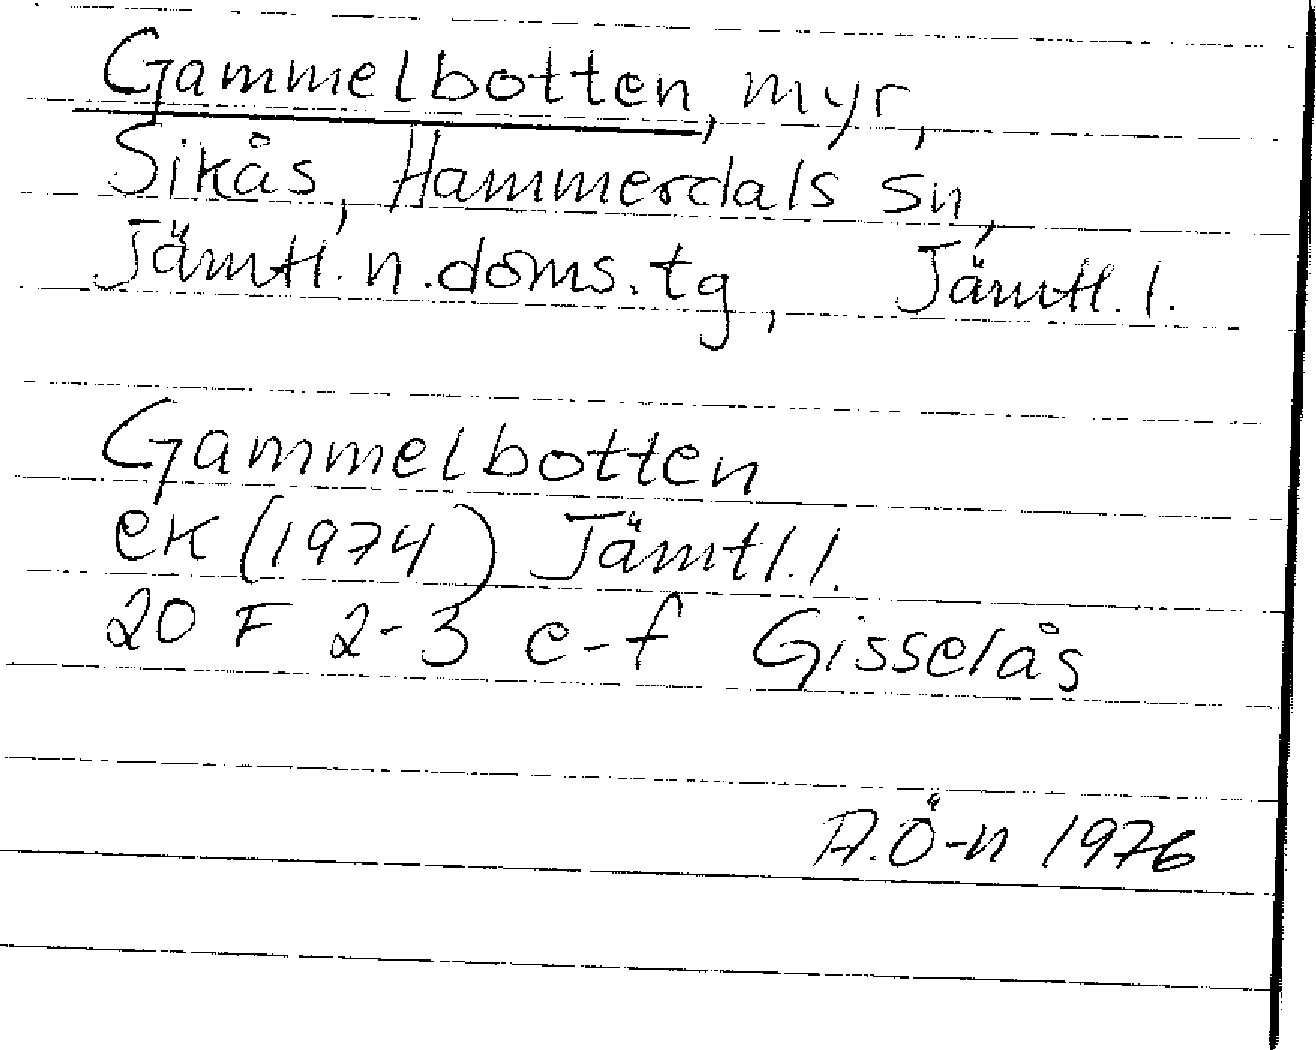 Gammelbotten, myr,
Sikås, Hammerdals sn,
Jämtl. n. doms. tg, Jämtl. l.
Gammelbotten
ek (1974) Jämtl. l.
20 F 2-3 e-f Gisselås
A.Ö-n 1976